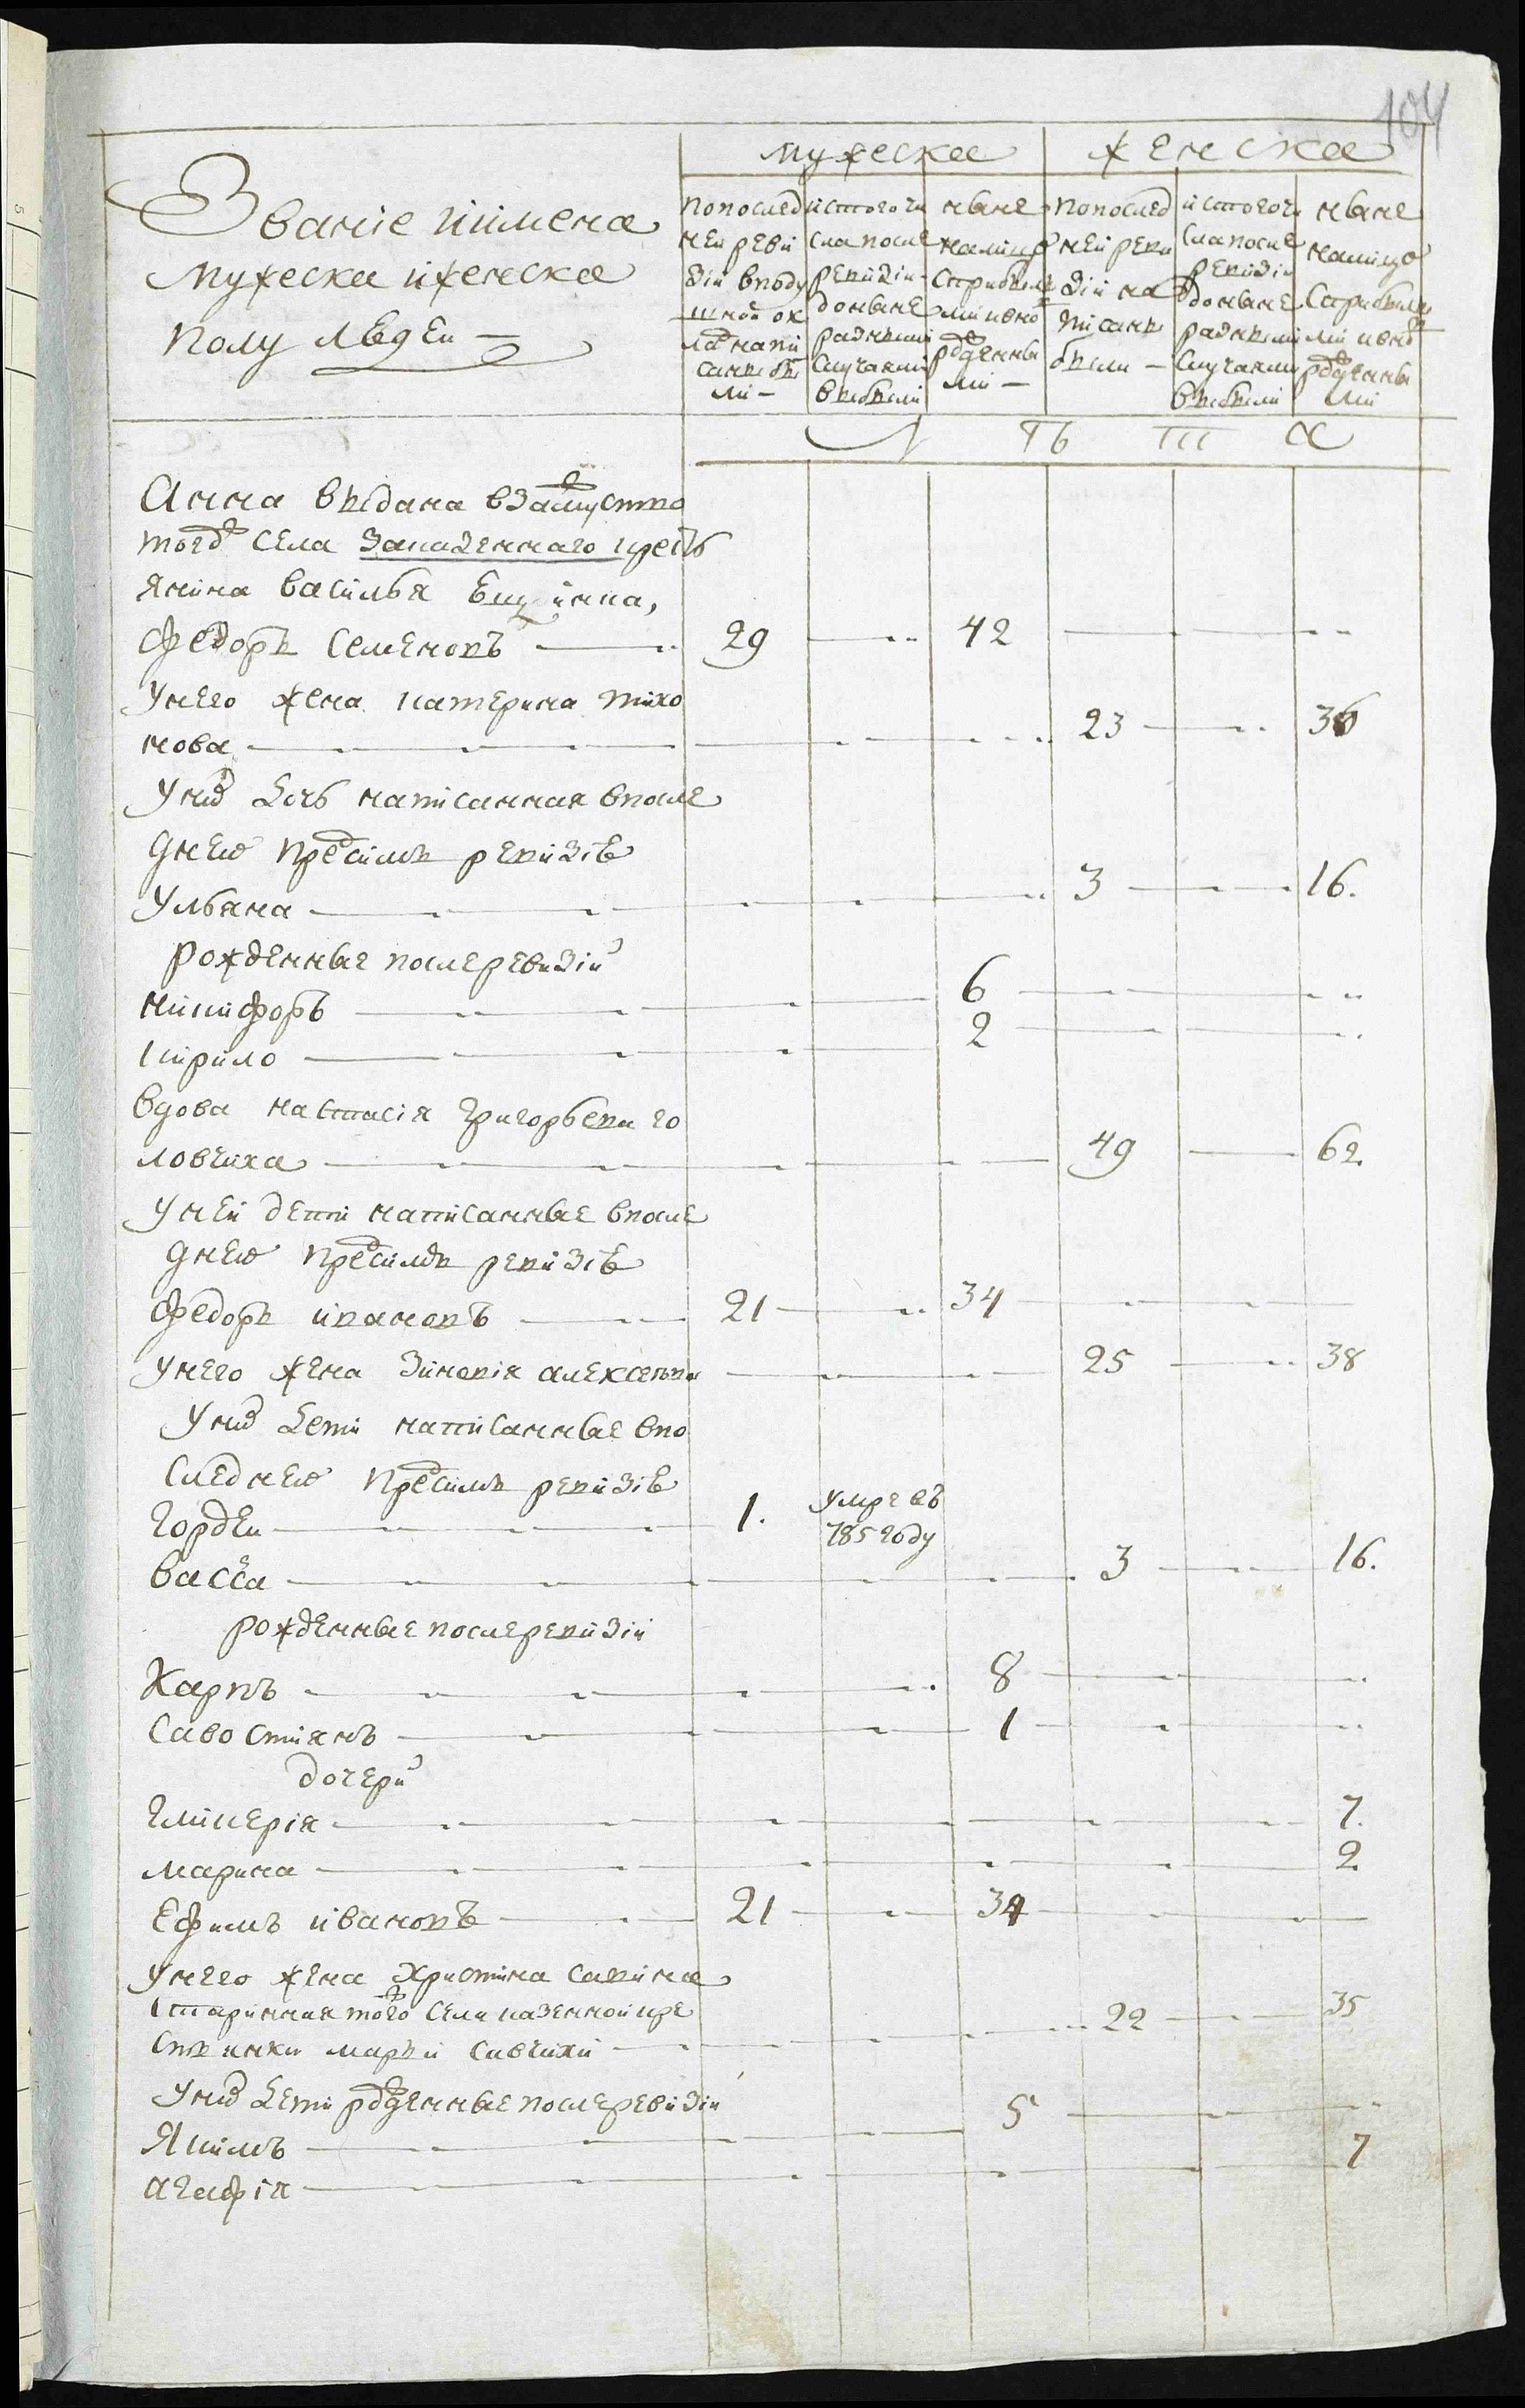 104
Званіе иимена
мужеска иженска
полу людеи
мужеска
женска
попослед
неи реви
зіи вподу
шной ок
ладнапи
саны бы
ли
истогочи
сла после
ревизіи
доныне
разными
случаями
выбыли
ныне
налицо
сприбылы
ми ивно
рожденны
ми
попослед
неи реви
зіи на
писаны
были
истогочи
сла после
ревизіи
доныне
разными
случаями
выбыли
ныне
налицо
сприбылы
ми ивно
рожденны
ми
л Ѣ т а
Анна выдана взамужство
тогож села казеннаго кресть
янина василья
Федоръ семеновъ 29 42
Унего жена катерина тихо
нова 23 36
Уних дочь написанная впосле
днею пред симъ ревизію
Ульяна 3 16.
рожденные послеревизіи
никифоръ 6
кирило 2
вдова настасія григорьева го
ловчиха 49 62
Уней дети написанные впосле
днею пред симъ ревизію
Федоръ ивановъ 21 34
Унего жена зиновія алексеева 25 38
Уних дети написанные впо
следнею пред симъ ревизію
гордеи 1. умре въ
785 году
васса 3 16.
рожденные послеревизіи
Карпъ 8
Савостиянъ 1
дочери
гликерія 7.
марина 2
Ефимъ ивановъ 21 34
Унего жена христина савина
старинная того ж села казенной кре
стьянки марьи савчихи 22 35
Уних дети рожденные послеревизіи
Якимъ 5
агафія 7